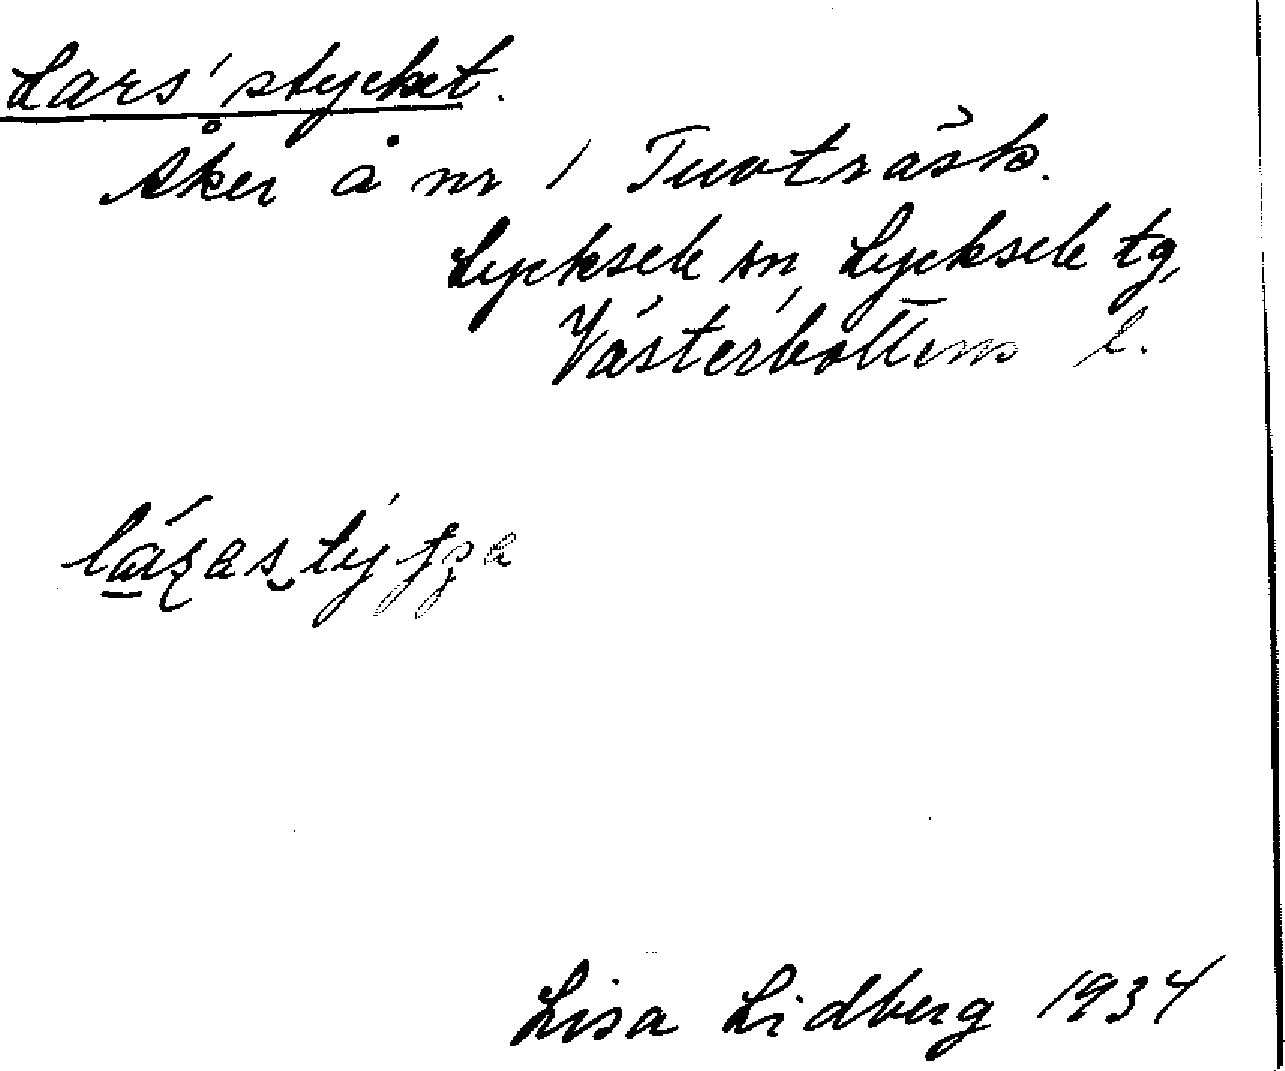 Lars'stycket.
Åker å nr 1 Tuvträsk.
Lycksele sn, Lycksele tg,
Västerbottens l.
Lisa Lidberg 1934